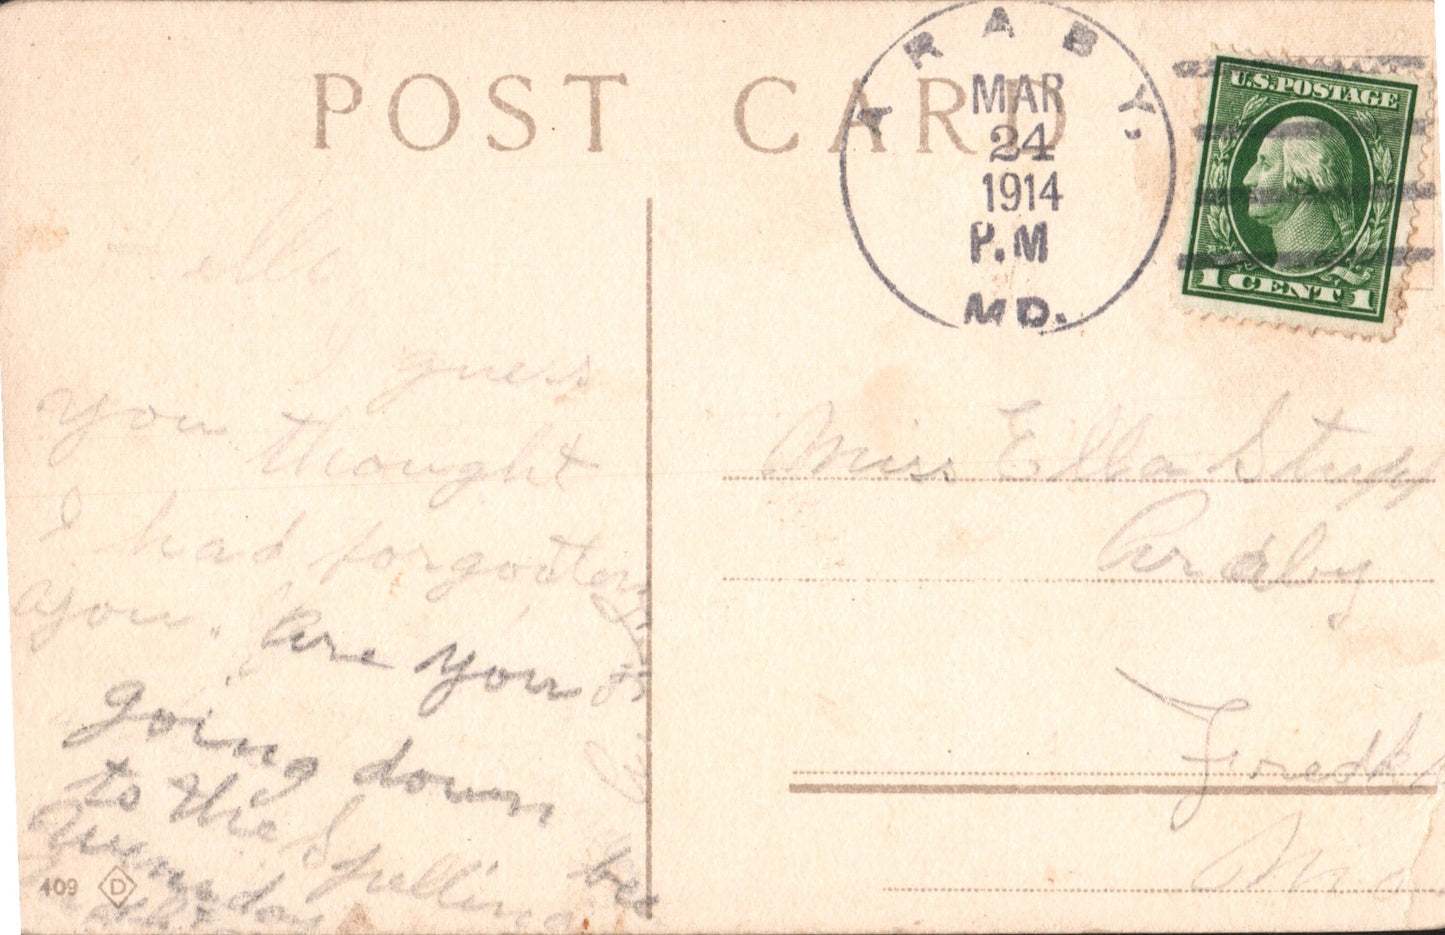 POST CARD
ARABY,
MAR
24
1914
P.M
MD.
U.S. POSTAGE
1 CENT 1
Hello
I guess
you thought
I had forgotten
you. Are you
going down
to the Spelling bee
409 D
Miss Ella Stupp
Araby
Fredk
Md